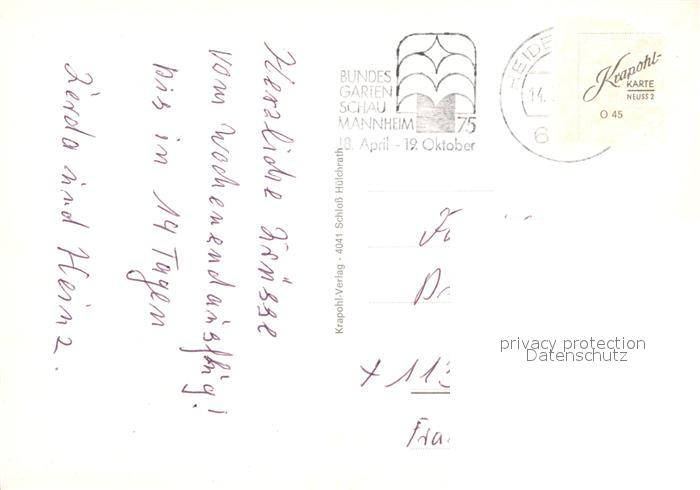 Herzliche Grüsse
vom Wochenendausflug!
bis in 14 Tagen
Gerda und Heinz.
BUNDES
GARTEN
SCHAU
MANNHEIM 75
18. April - 19. Oktober
HEIDE
14.
6
Krapohl-
KARTE
NEUSS 2
O 45
Krapohl-Verlag - 4041 Schloß Hülchrath
+ 113
Fra
privacy protection
Datenschutz